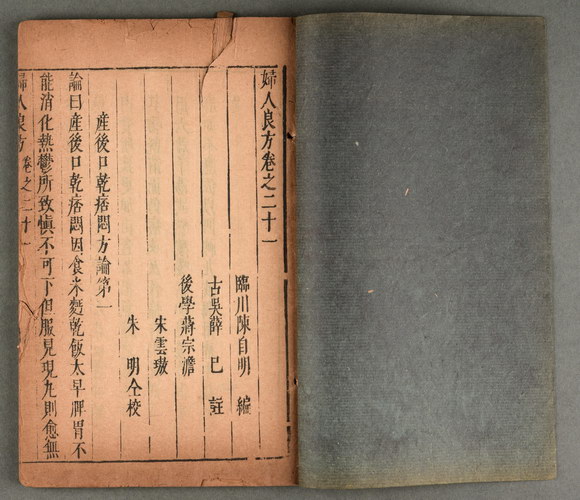 婦人良方卷之二十一
臨川陳自明 編
古吳薛 已 註
後學蔣宗澹
朱雲璈
朱 明仝校
產後口乾痞悶方論第一
論曰產後口乾痞悶因食米麵乾飯太早脾胃不
能消化熱鬱所致慎不可下但服見現丸則愈無
婦人良方 卷之二十一